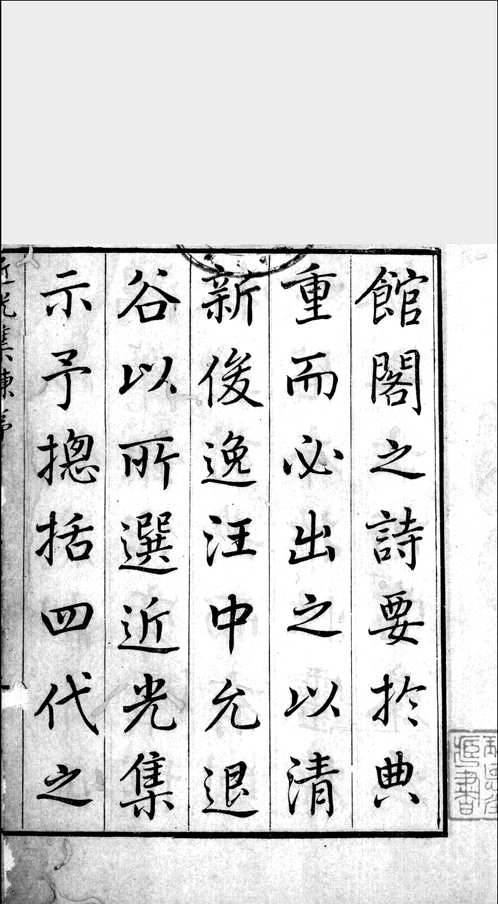 館閣之詩要扵典
重而必出之以清
新俊逸汪中允退
谷以所選近光集
示予摠括四代之
近光集陳序